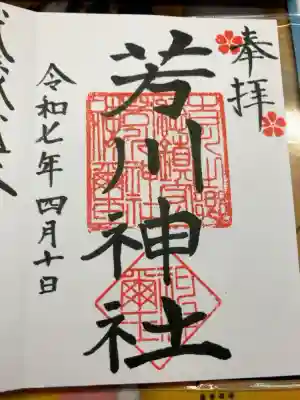 奉拝
芳川神社
令和七年四月十日